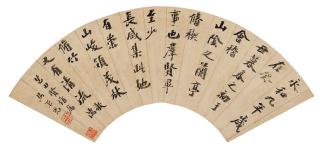 永和九年歲
在癸
丑暮春之初
會稽
山陰之蘭亭
脩禊
事也羣賢畢
至少
長咸集此地
有崇
山峻領茂林
脩竹
又有清流